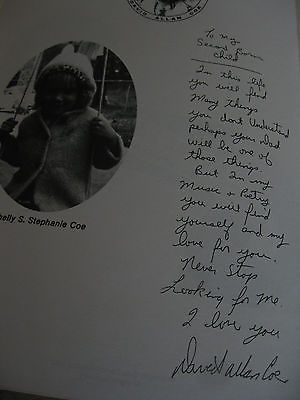 DAVID ALLAN COE
To my
Second Born
Child
In this life
you will find
Many things
you don't Understand
perhaps your Dad
will be one of
those things.
But In my
Music & Poetry
you will find
yourself and my
love for you.
Never Stop
Looking for Me.
I love you
David Allan Coe
elly S. Stephanie Coe